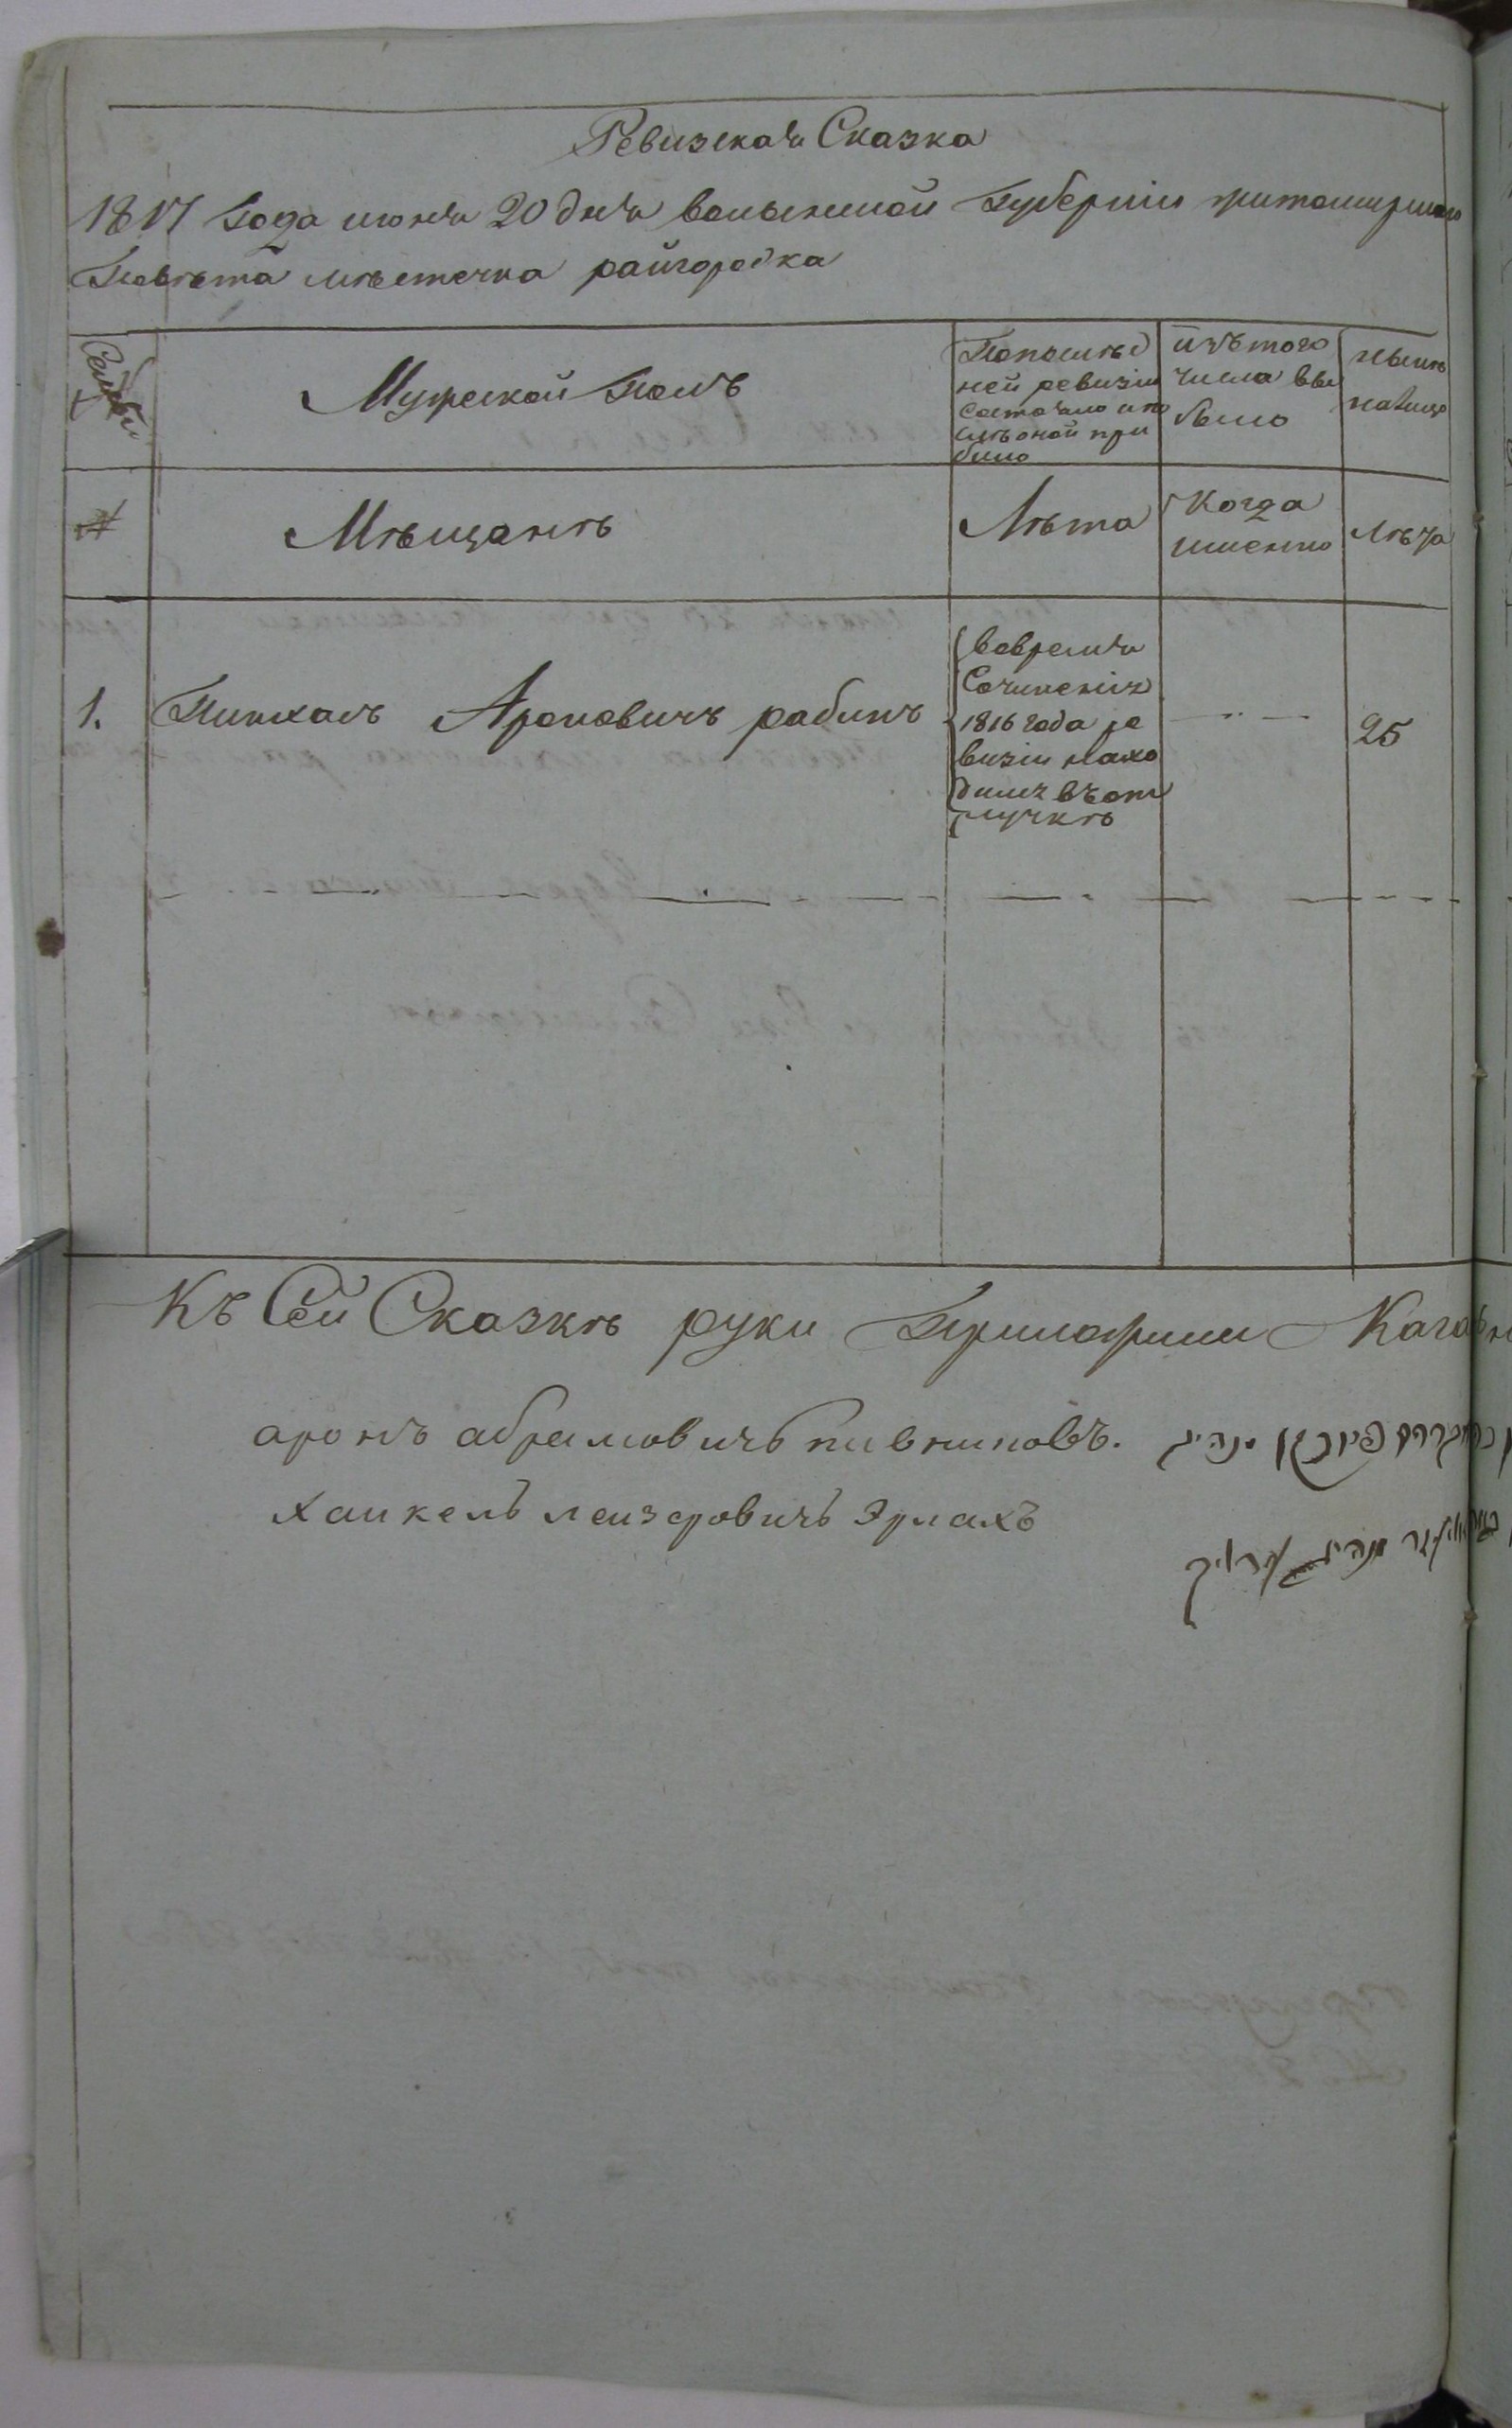 Ревизская Сказка
1817 Года июня 20 дня волынской Губернии житомирского
Повѣта мѣстечка райгородка
Семьи
Мужеской Полъ
Попослѣд
ней ревизии
состояло и по
слѣ оной при
было
изъ того
числа вы
было
нынѣ
налицо
№
Мѣщанѣ
Лѣта
Когда
именно
Лѣта
1.
Пинхасъ Ароновичъ рабинъ
вовремя
Сочинения
1816 года ре
визии нахо
дился въ от
лучкѣ
25
Къ Сей Сказкѣ руки Приложили
аронъ абрамовичъ пивниковъ.
хаикель леизеровичъ Эрлахъ